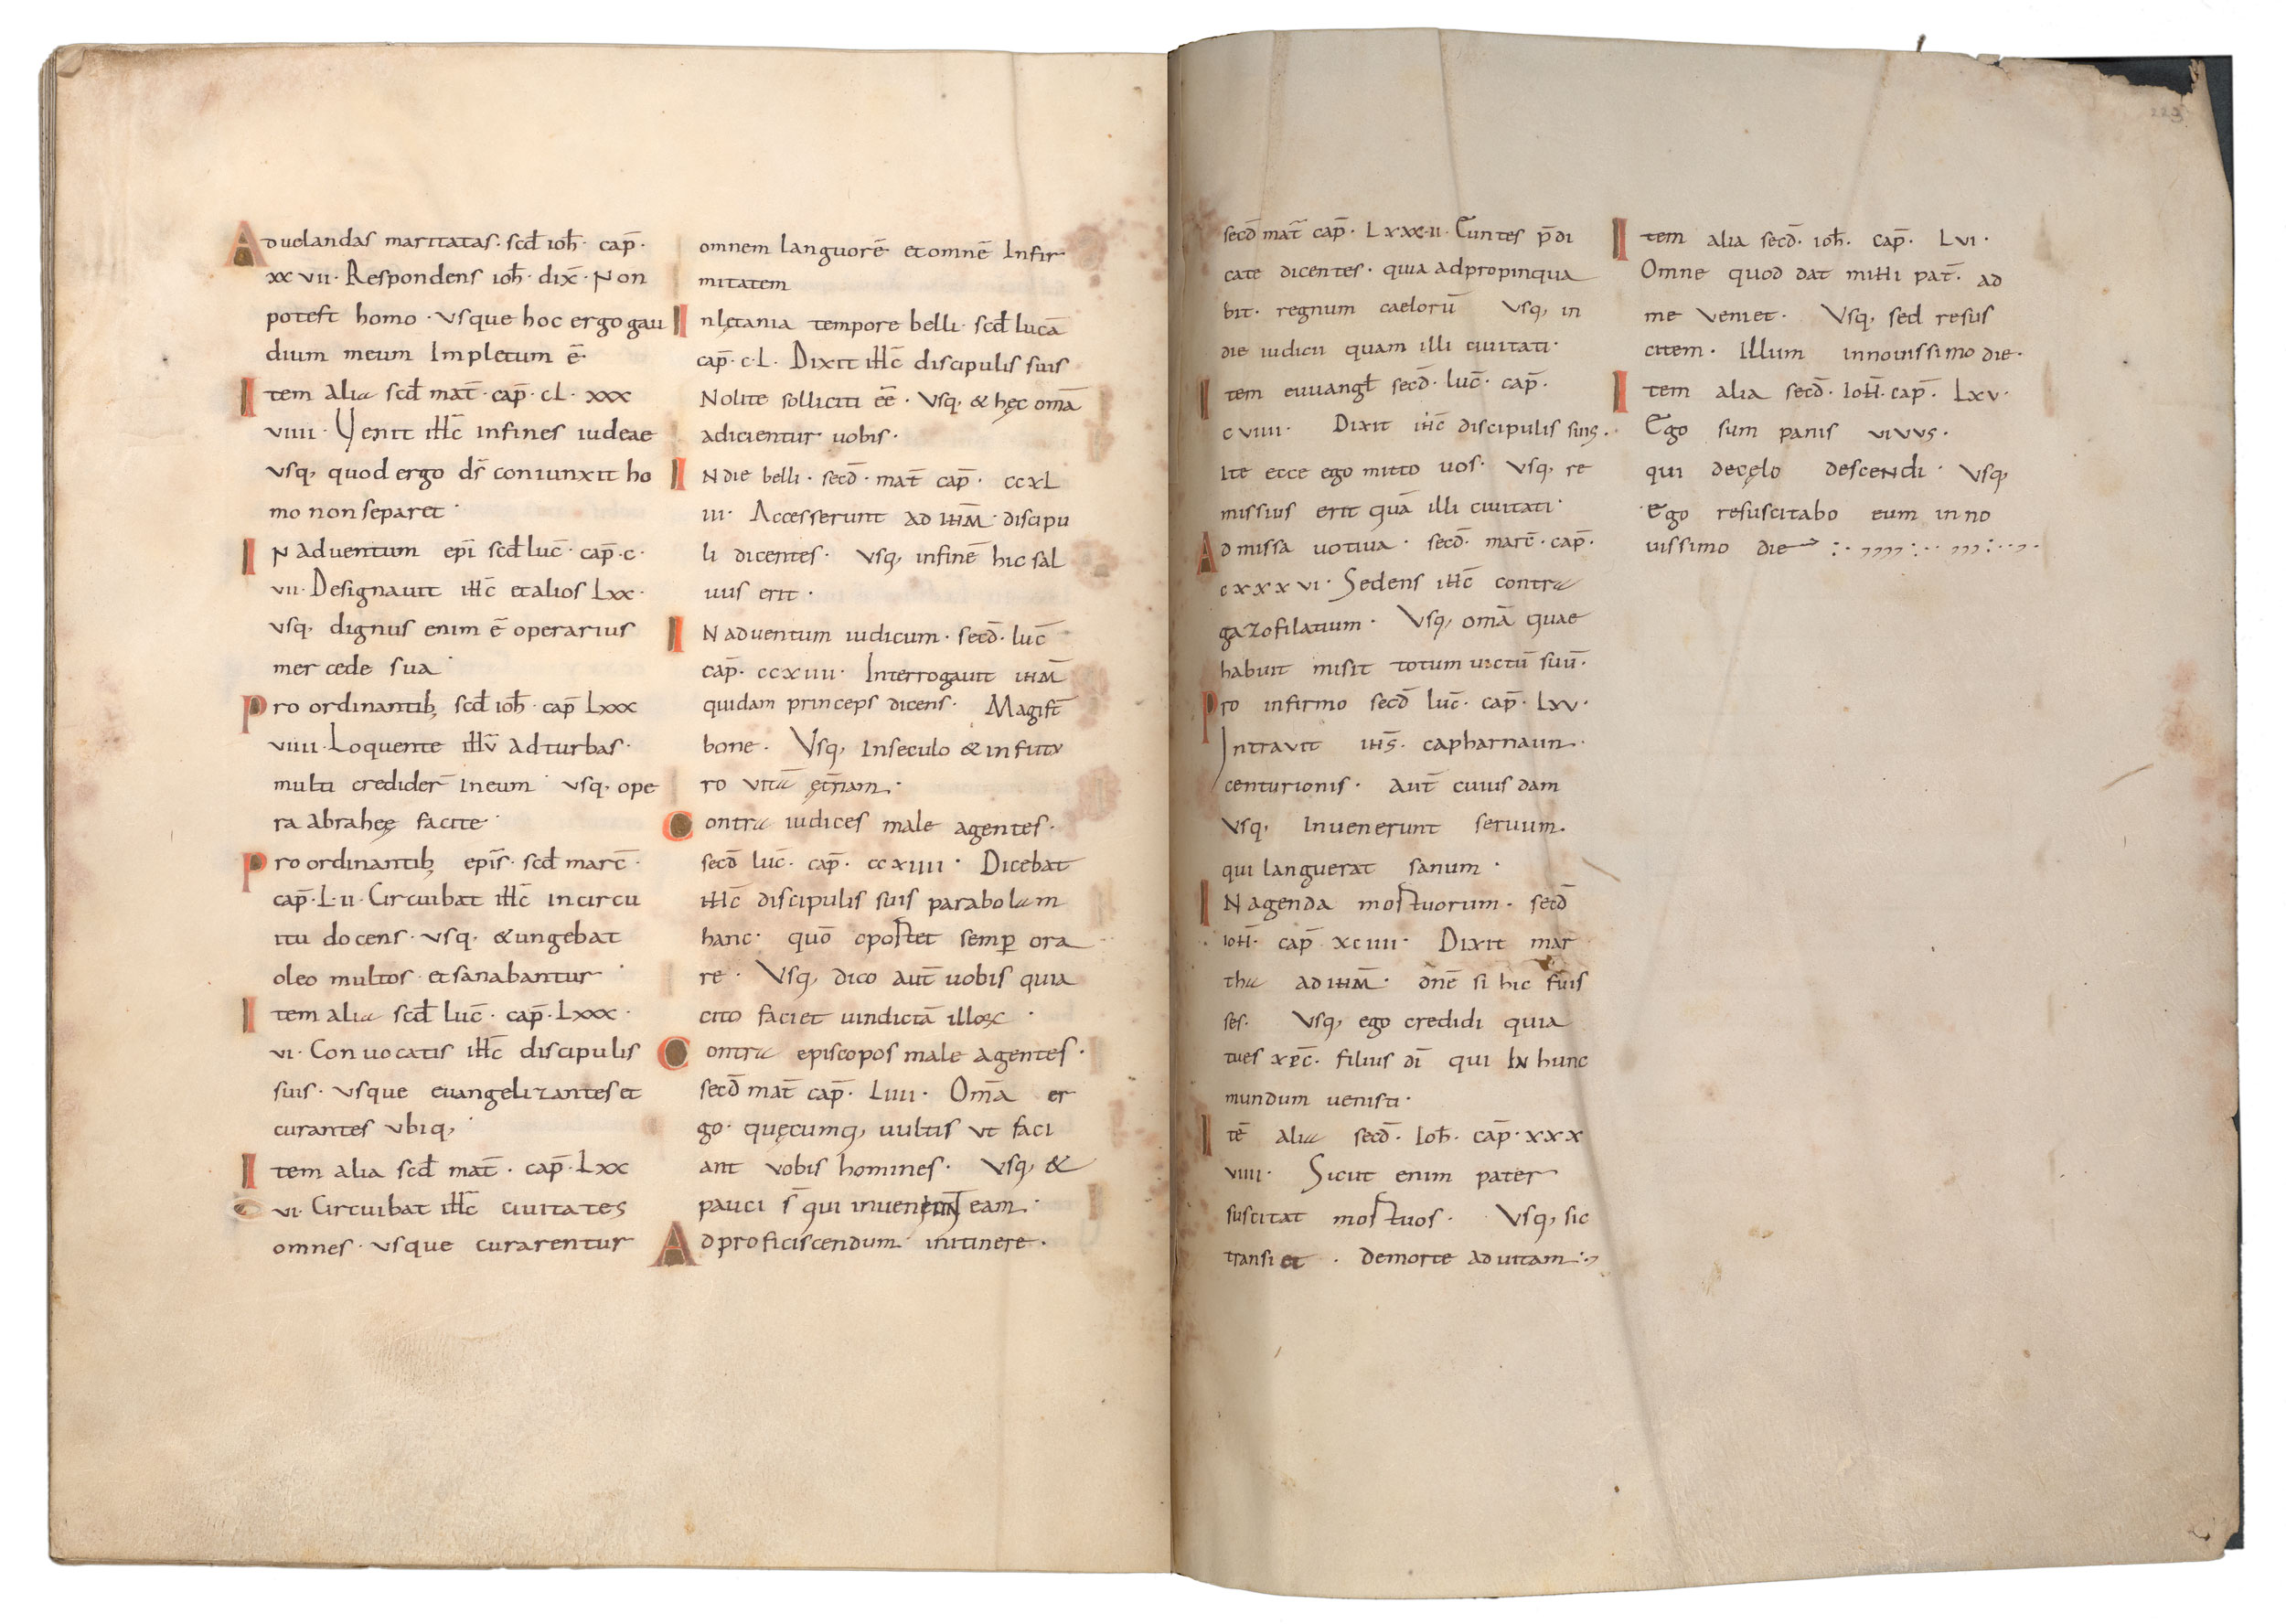 Aduelandas maritatas· scd̄ ioh̄· cap̄·
xxvii· Respondens ioh̄· dix̄· Non
potest homo · vsque hoc ergo gau
dium meum Impletum ē·
Item alia scd̄ mat̄· cap̄· cL· xxx
viiii· Venit ih̄c infines iudeae
vsq, quod ergo ds̄ coniunxit ho
mo non separet·
IN aduentum ep̄i scd̄ luc̄· cap̄· c·
vii· Designauit ih̄c et alios Lxx·
vsq, dignus enim ē operarius
mercede sua·
Pro ordinantib; scd̄ ioh̄· cap̄ Lxxx
viiii· Loquente ih̄v ad turbas·
multi credider̄ in eum· vsq, ope
ra abrahę facite·
Pro ordinantib; ep̄is· scd̄ marc̄·
cap̄· L·ii· Circuibat ih̄c in circu
itu docens· vsq, & ungebat
oleo multos· et sanabantur·
Item alia scd̄ luc̄· cap̄· Lxxx·
vi· Conuocatis ih̄c discipulis
suis· vsque euangelizantes et
curantes vbiq,·
Item alia scd̄ mat̄· cap̄· Lxx
vi· Circuibat ih̄c ciuitates
omnes· vsque curarentur
omnem languorē et omnē Infir
mitatem
Inlętania tempore belli· scd̄ lucā
cap̄· c·L· Dixit ih̄c discipulis suis
Nolite solliciti ēē· Vsq, & hęc om̄a
adicientur uobis·
IN die belli· secd̄· mat̄ cap̄· ccxL
iii· Accesserunt ad ih̄m discipu
li dicentes· vsq, infinē hic sal
uus erit·
IN aduentum iudicum· secd̄· luc̄
cap̄· ccxiiii· Interrogauit ih̄m
quidam princeps dicens· Magist̄
bone· Vsq, Inseculo & infutv
ro vita ęt̄nam·
Contra iudices male agentes·
secd̄ luc̄· cap̄· ccxiiii· Dicebat
ih̄c discipulis suis parabolam
hanc· quō oportet semꝑ ora
re· Vsq, dico aut̄ uobis quia
cito faciet uindictā illoꝝ·
Contra episcopos male agentes·
secd̄ mat̄ cap̄· Liiii· Om̄a er
go· quęcumq, uultis vt faci
ant vobis homines· Vsq, &
pauci s̄ qui inueniunt eam·
Ad proficiscendum initinere·
secd̄ mat̄ cap̄· Lxxxii· Euntes p̄di
cate dicentes· quia adpropinqua
bit· regnum caelorū Vsq, in
die iudicii quam illi ciuitati·
Item euuangl̄ secd̄· luc̄· cap̄·
cviiii· Dixit ih̄c discipulis suis·
Ite ecce ego mitto uos· Vsq, re
missius erit quā illi ciuitati·
Ad missa uotiua· secd̄· marc̄· cap̄·
cxxxvi· Sedens ih̄c contra
gazofilatium· Vsq, om̄a quae
habuit misit totum uictū suū·
Pro infirmo secd̄ luc̄· cap̄· Lxv·
Intravit ih̄s· capharnaun·
centurionis· aut̄ cuiusdam
Vsq, Inuenerunt seruum·
qui languerat sanum·
IN agenda mortuorum· secd̄
ioh̄· cap̄ xciiii· Dixit mar
tha ad ih̄m· dn̄e si hic fuis
ses· Vsq, ego credidi quia
tues xp̄c· filius dī qui IN hunc
mundum uenisti·
Itē alia secd̄· Ioh̄· cap̄· xxx
viiii· Sicut enim pater
suscitat mortuos· Vsq, sic
transiet· demorte ad uitam:,
Item alia secd̄· ioh̄· cap̄· Lvi·
Omne quod dat mihi pat̄· ad
me veniet· Vsq, sed resus
citem· illum innouissimo die·
Item alia secd̄· Ioh̄· cap̄· Lxv·
Ego sum panis vivvs·
qui decęlo descendi· Vsq,
Ego resuscitabo eum in no
uissimo die :· ,,,, :·· ,,, :··,·
223